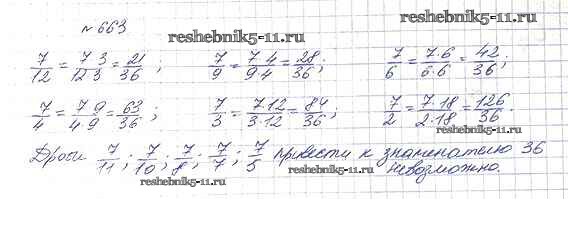 №663
reshebnik5-11.ru reshebnik5-11.ru
7/12 = 7·3/12·3 = 21/36; 7/9 = 7·4/9·4 = 28/36; 7/6 = 7·6/6·6 = 42/36;
7/4 = 7·9/4·9 = 63/36; 7/3 = 7·12/3·12 = 84/36; 7/2 = 7·18/2·18 = 126/36.
reshebnik5-11.ru
Дроби 7/11; 7/10; 7/8; 7/7; 7/5 привести к знаменателю 36
reshebnik5-11.ru reshebnik5-11.ru
невозможно.